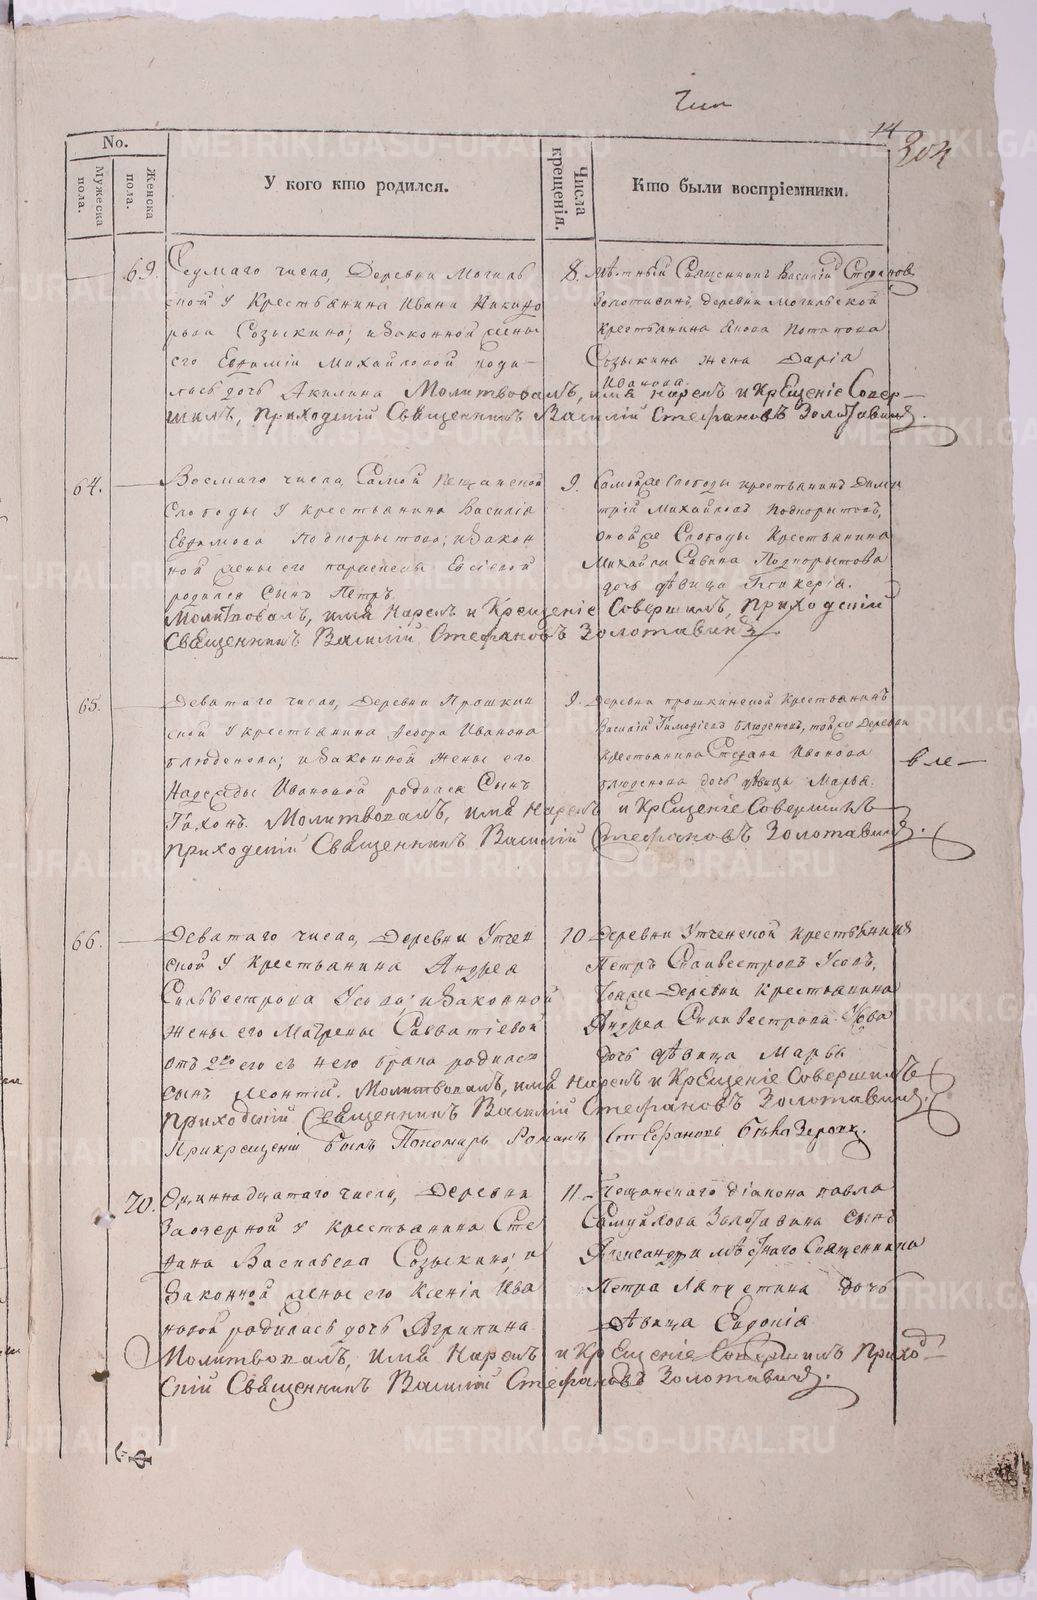 14
304
No.
Мужеска пола.
Женска пола.
У кого кто родился.
Числа крещенія.
Кто были воспріемники.
69.
Седмаго числа, Деревни Могиль
ской у Крестьянина Ивана Никифо
рова Созыкина; и законной жены
его Евфимии Михайловой роди-
лась дочь Акилина
8.
мѣстный Священникъ Василий Стефановъ
Золотавинъ, деревни Могильской
крестьянина Потапова
Созыкина жена Дарія
Иванова.
Молитвовалъ, имя нарекъ и Крещеніе Совер-
шилъ, приходскій Священникъ Василій Стефановъ Золотавинъ.
64.
Восмаго числа Самой Пещанской
Слободы у крестьянина Василія
Евфимова Подкорытова; и закон
ной жены его параскевы Евсіевой
родился Сынъ Петръ
9.
Самой же Слободы крестьянинъ Дими
трій Михайловъ Подкорытовъ,
оной же Слободы Крестьянина
Михайла Савина Подкорытова
дочь дѣвица Гликерія.
Молитвовалъ, имя Нарекъ и Крещеніе Совершилъ, приходскій
Священникъ Василій Стефановъ Золотавинъ
65.
Девятаго числа, Деревни Прошкин
ской у крестьянина Федора Иванова
блюденова; и законной жены его
Надежды Ивановой родился Сынъ
Тихонъ.
9.
Деревни прошкинской Крестьянинъ
Василій Тимофіевъ блюденовъ, той же Деревни
крестьянина Стефана Иванова
блюденова дочь дѣвица Марья.
Молитвовалъ, имя Нарекъ и Крещеніе Совершилъ
приходскій Священникъ Василій Стефановъ Золотавинъ.
66.
Девятаго числа, Деревни Утчен
ской у крестьянина Андрея
Сильвестрова Усова; и Законной
жены его Матрены Савватіевой
отъ 2го его съ нею брака родился
сынъ Леонтій.
10
Деревни Утченской крестьянинъ
Петръ Силивестровъ Усовъ,
Тоя же Деревни Крестьянина
Андрея Силивестрова Усова
дочь дѣвица Марья
Молитвовалъ, имя Нарекъ и Крещеніе Совершилъ
приходскій Священникъ Василій Стефановъ Золотавинъ.
При крещеніи былъ Пономарь Романъ Стефановъ
70.
Одиннадцатаго числа, Деревни
Заозерной у крестьянина Сте
фана Васильева Созыкина; и
Законной жены его Ксеніи Ива
новой родилась дочь Агрипина
11.
Пещанскаго діакона павла
Самуйлова Золотавина сынъ
Александръ и мѣстнаго Священника
Петра Ляпустина дочь
дѣвица Евдокія
Молитвовалъ, имя Нарекъ и Крещеніе Совершилъ приход-
скій Священникъ Василій Стефановъ Золотавинъ.